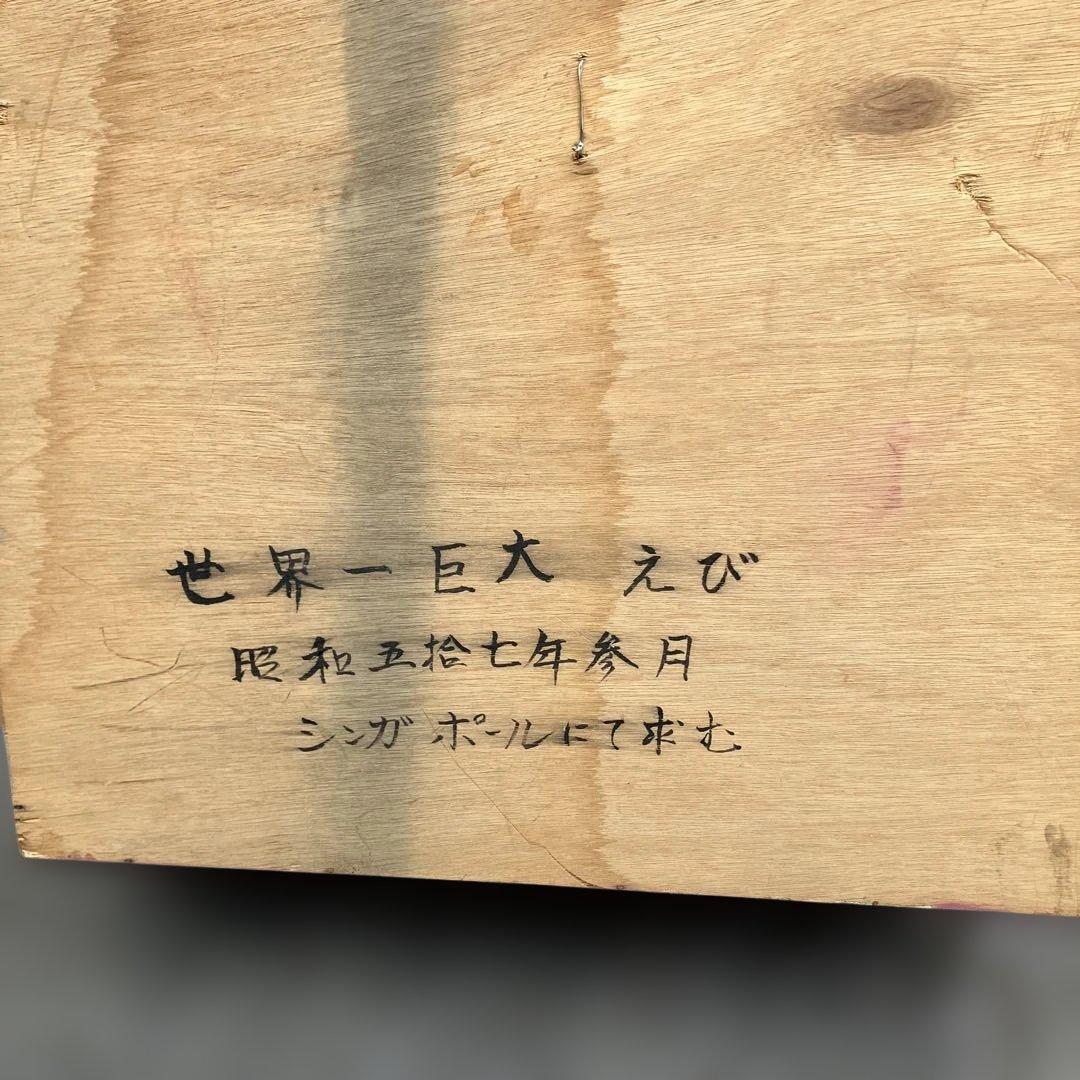 世界一巨大 えび
昭和五拾七年参月
シンガポールにて求む